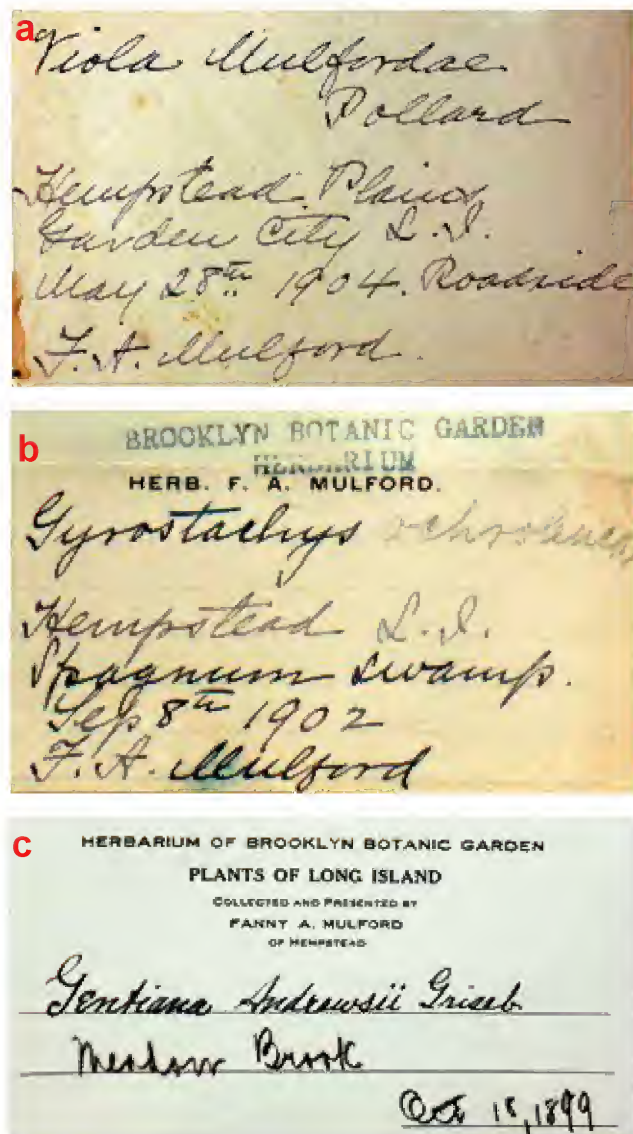 a
Viola Mulfordae
Pollard
Hempstead Plains
Garden City L.I.
May 28th 1904. Roadside
F. A. Mulford.
b
BROOKLYN BOTANIC GARDEN
HERBARIUM
HERB. F. A. MULFORD.
Gyrostachys ochroleuca
Hempstead L.I.
Spagnum swamp.
Sep 8th 1902
F. A. Mulford
c
HERBARIUM OF BROOKLYN BOTANIC GARDEN
PLANTS OF LONG ISLAND
COLLECTED AND PRESENTED BY
FANNY A. MULFORD
OF HEMPSTEAD
Gentiana Andrewsii Griseb
Meadow Brook
Oct 18, 1899